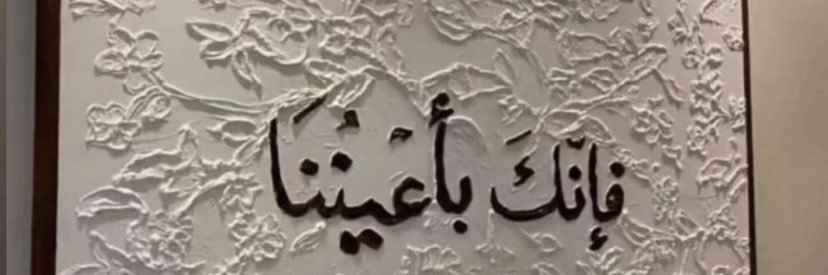 فإنّكَ بأعْيُنِنَا